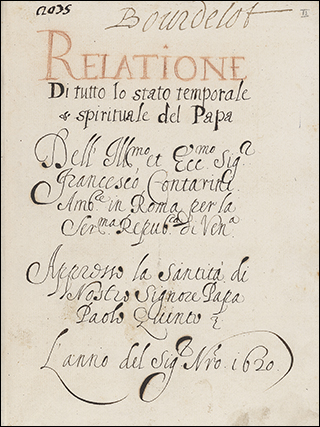 12035
Bourdelot
II
RELATIONE
Di tutto lo stato temporale
& spirituale del Papa
Dell' Ill.mo et Ecc.mo Sig.r
Francesco Contarini
Amb.re in Roma per la
Ser.ma Repub.ca di Ven.a
Appresso la Santità di
Nostro Signore Papa
Paolo Quinto
L'anno del Sig.r Nro. 1620